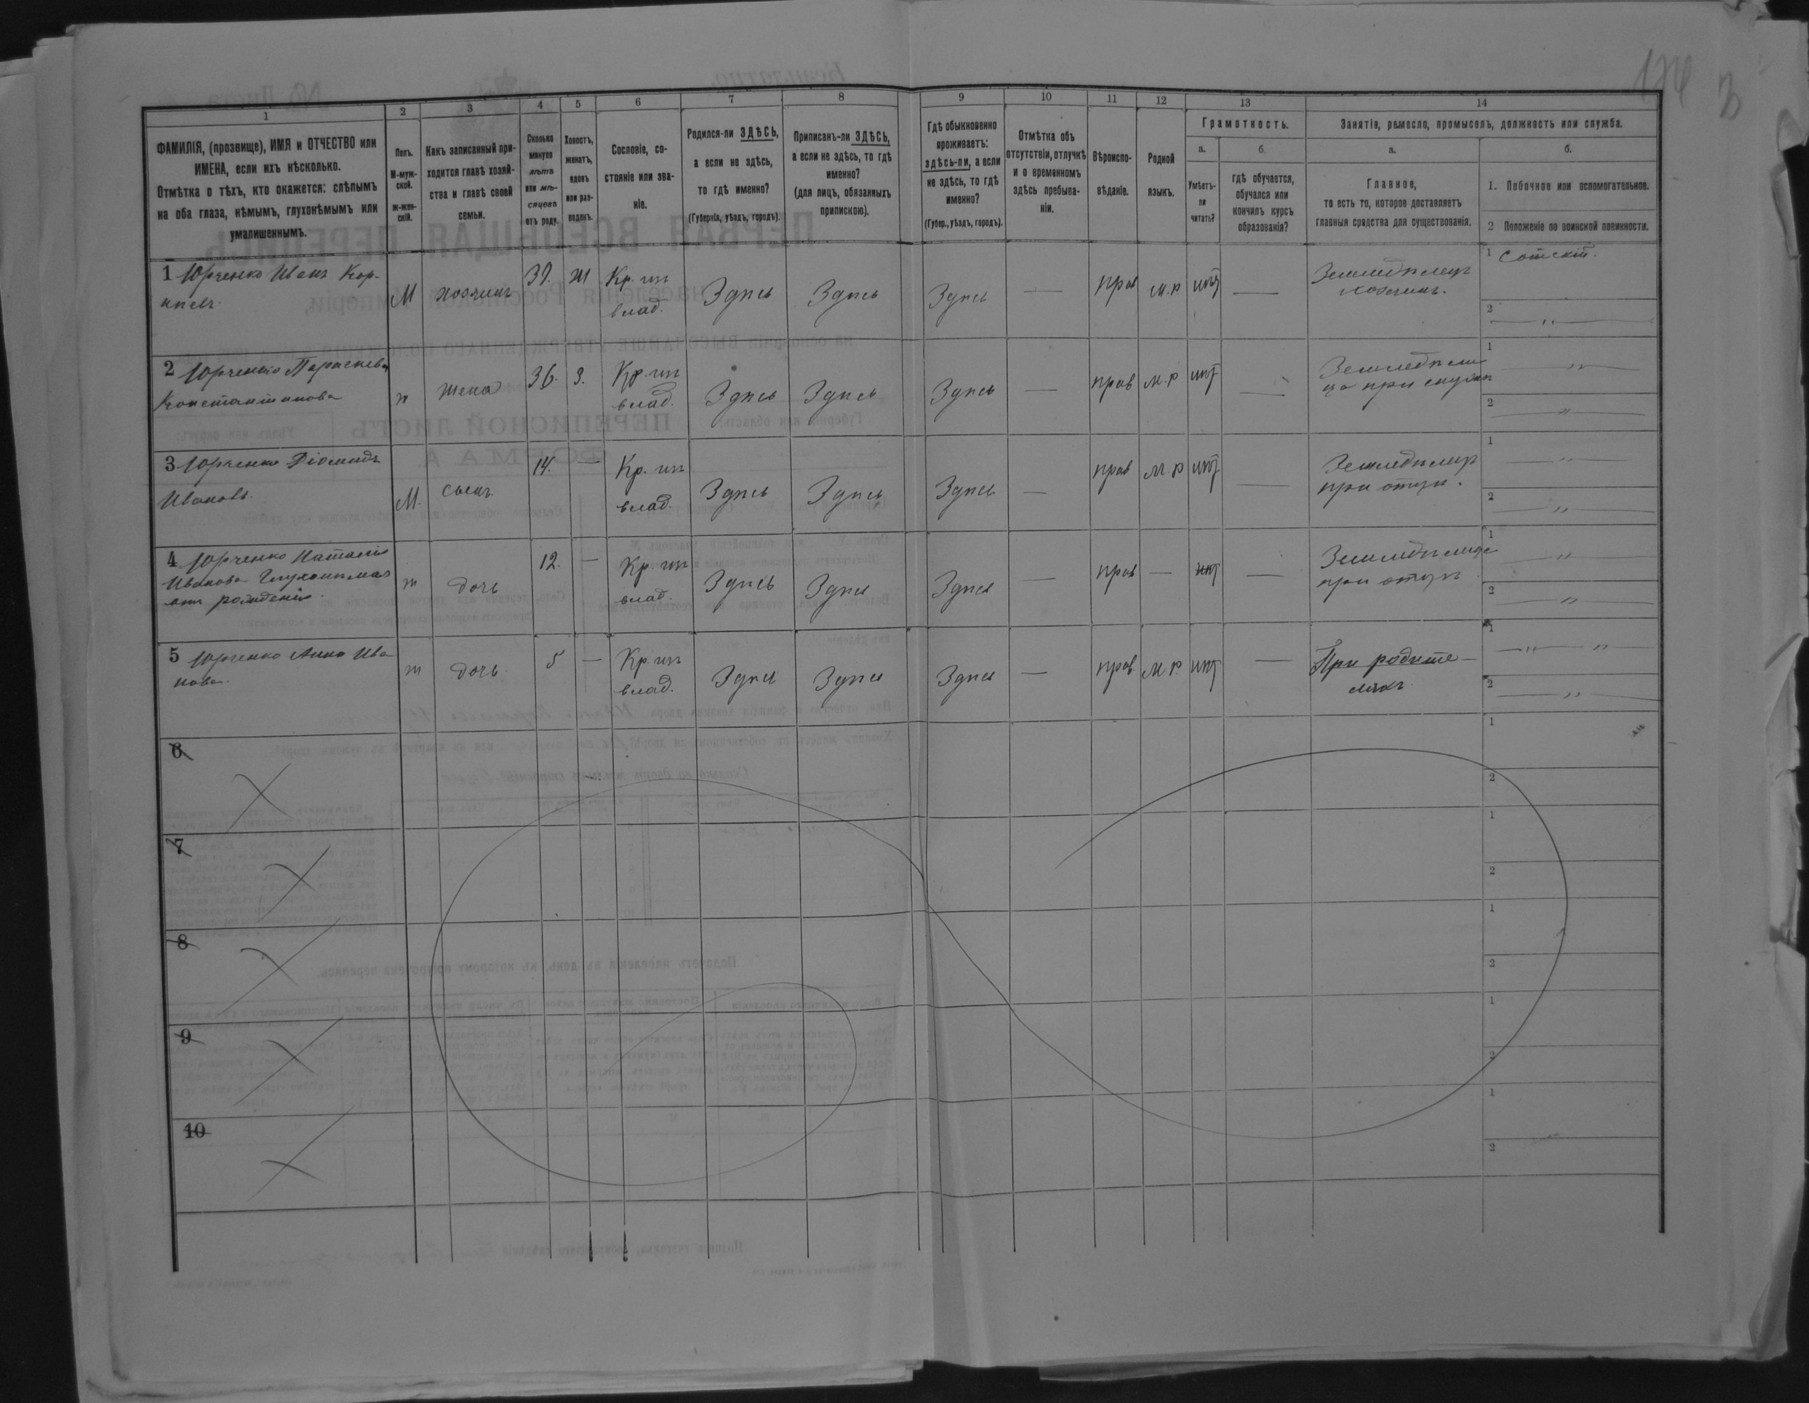 1
2
3
4
5
6
7
8
9
10
11
12
13
14
ФАМИЛІЯ, (прозвище), ИМЯ и ОТЧЕСТВО или
ИМЕНА, если ихъ нѣсколько.
Отмѣтка о тѣхъ, кто окажется: слѣпымъ
на оба глаза, нѣмымъ, глухонѣмымъ или
умалишеннымъ.
Полъ.
М-муж-
ской.
ж-жен-
скій.
Какъ записанный при-
ходится главѣ хозяй-
ства и главѣ своей
семьи.
Сколько
минуло
лѣтъ
или мѣ-
сяцевъ
отъ роду.
Холостъ,
женатъ,
вдовъ
или раз-
веденъ.
Сословіе, со-
стояніе или зва-
ніе.
Родился-ли ЗДѢСЬ,
а если не здѣсь,
то гдѣ именно?
(Губернія, уѣздъ, городъ).
Приписанъ-ли ЗДѢСЬ,
а если не здѣсь, то гдѣ
именно?
(для лицъ, обязанныхъ
припискою).
Гдѣ обыкновенно
проживаетъ:
здѣсь-ли, а если
не здѣсь, то гдѣ
именно?
(Губер., уѣздъ, городъ).
Отмѣтка объ
отсутствіи, отлучкѣ
и о временномъ
здѣсь пребыва-
ніи.
Вѣроиспо-
вѣданіе.
Родной
языкъ.
Грамотность.
а.
Умѣетъ-
ли
читать?
б.
гдѣ обучается,
обучался или
кончилъ курсъ
образованія?
Занятіе, ремесло, промыселъ, должность или служба.
а.
Главное,
то есть то, которое доставляетъ
главныя средства для существованія.
б.
1. Побочное или вспомогательное.
2 Положеніе по воинской повинности.
1 Юрченко Иванъ Кор-
М хозяинъ 39 ж Кр. из
влад. Здѣсь Здѣсь Здѣсь — прав м.р нѣт —
Земледѣлецъ
хозяинъ.
1 Сотскій.
2 — „ —
2 Юрченко Параскева
Константинова
ж жена 36. З. Кр. из
влад. Здѣсь Здѣсь Здѣсь — прав м.р нѣт —
1 „
2 „
3 Юрченко Діомидъ
Ивановъ.
М. сынъ 14. — Кр. из
влад. Здѣсь Здѣсь Здѣсь — прав м.р нѣт —
Земледѣлецъ
при отцѣ.
1 „
2 „
4 Юрченко Наталія
Иванова Глухонѣмая
отъ рожденія.
ж дочь 12. — Кр из
влад. Здѣсь Здѣсь Здѣсь — прав — нѣт —
при отцѣ
1 „
2 „
5 Юрченко Анна Ива
нова.
ж дочь. 5 — Кр из
влад. Здѣсь Здѣсь Здѣсь — прав. м.р. нѣт —
При родите-
ляхъ.
1 „ „
2 „
6
1
2
7
1
2
8
1
2
9
1
2
10
1
2